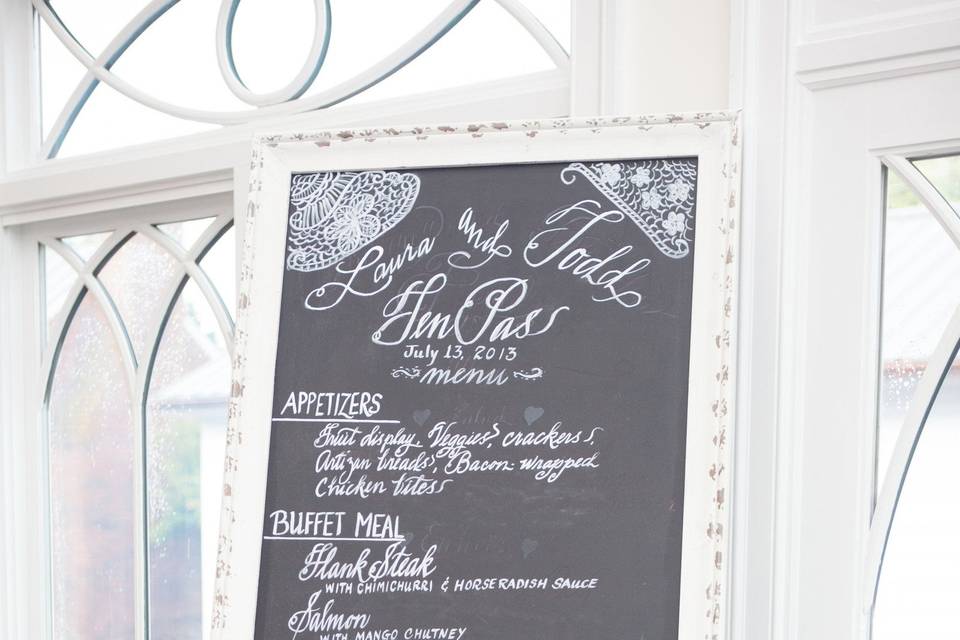 Laura and Todd
TenPas
July 13, 2013
menu
APPETIZERS
Fruit display, Veggies, crackers,
Artizan breads, Bacon-wrapped
Chicken bites
BUFFET MEAL
Flank Steak
WITH CHIMICHURRI & HORSERADISH SAUCE
Salmon
WITH MANGO CHUTNEY